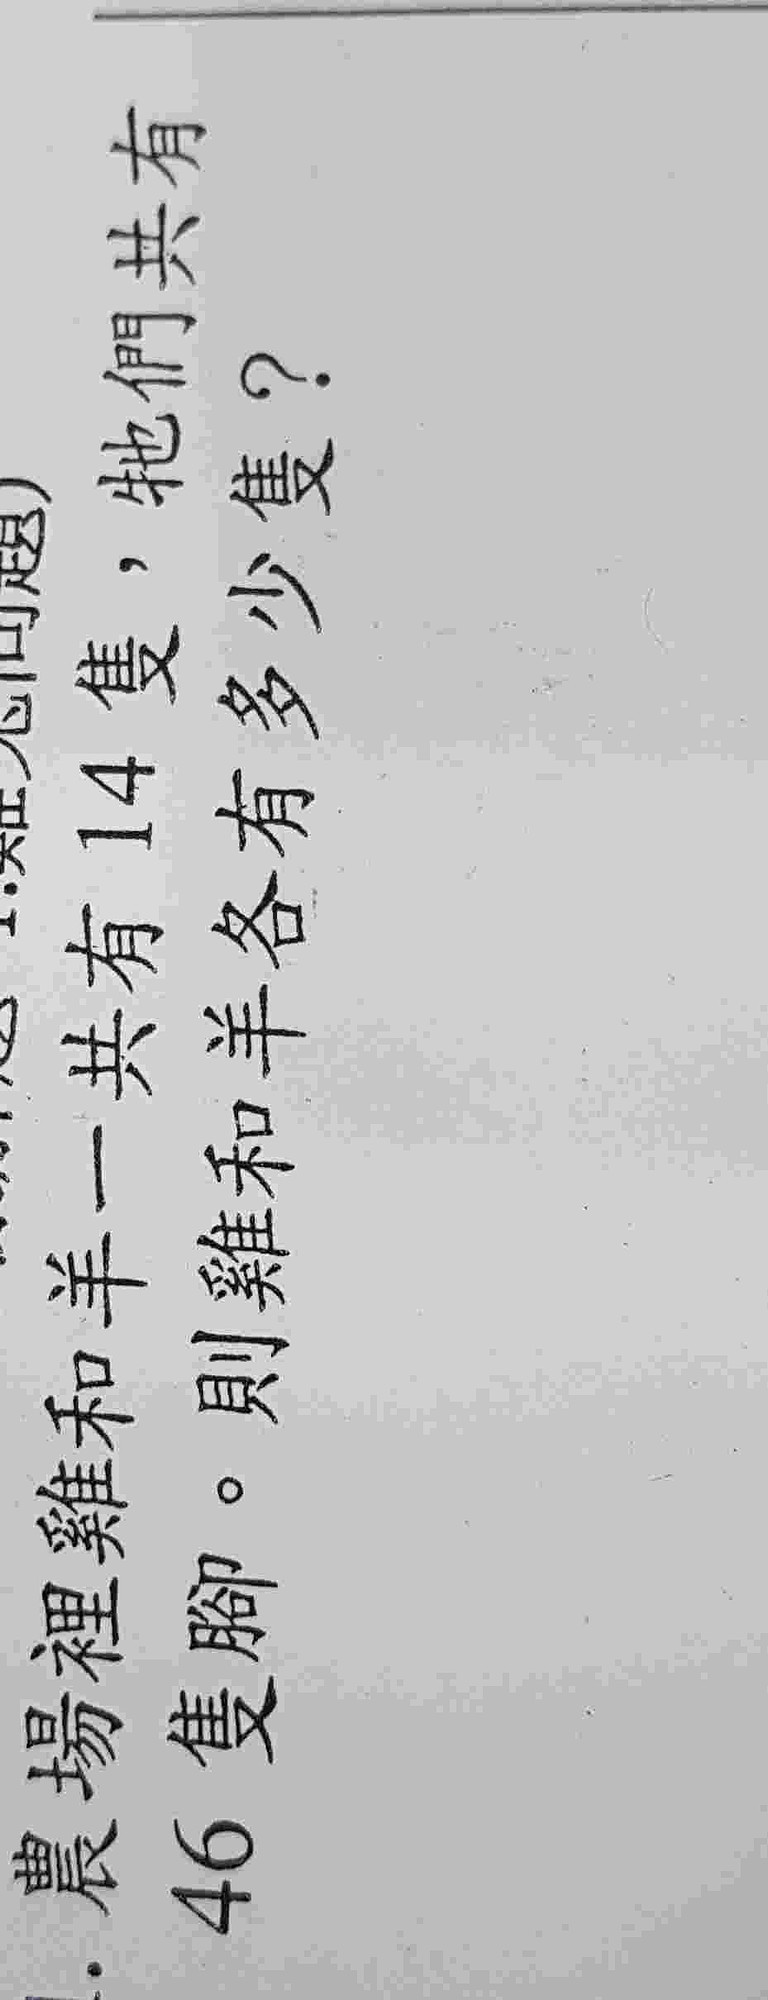 1.雞兔問題)
1. 農場裡雞和羊一共有 14 隻，牠們共有
46 隻腳。則雞和羊各有多少隻？